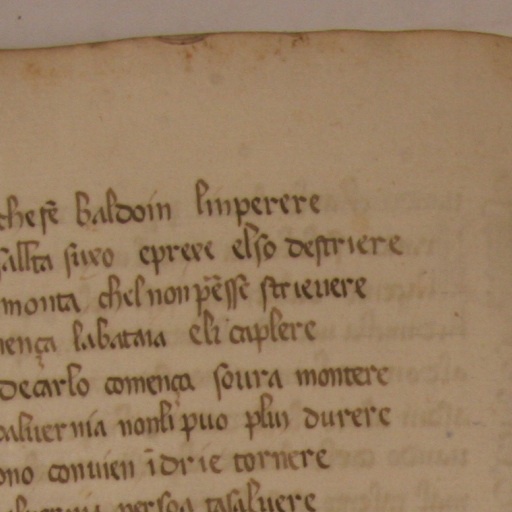 che fē baldoin linperere
salta suxo e preve elso destriere
monta chel non pēsse strievere
mença la bataia eli caplere
de carlo comença soura montere
baluernia non li puo plui durere
ono conuien īdrie tornere
persoa